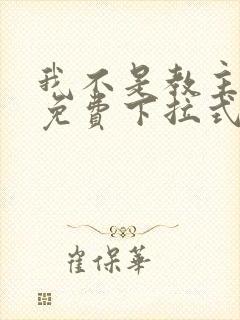 我不是教主
免費下拉式
崔保華